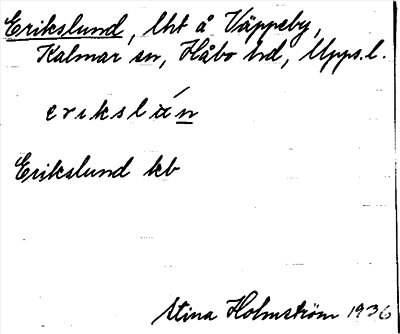 Erikslund, lht å Väppeby,
Kalmar sn, Håbo hd, Upps.l.
erikslún
Erikslund kb
Stina Holmström 1936